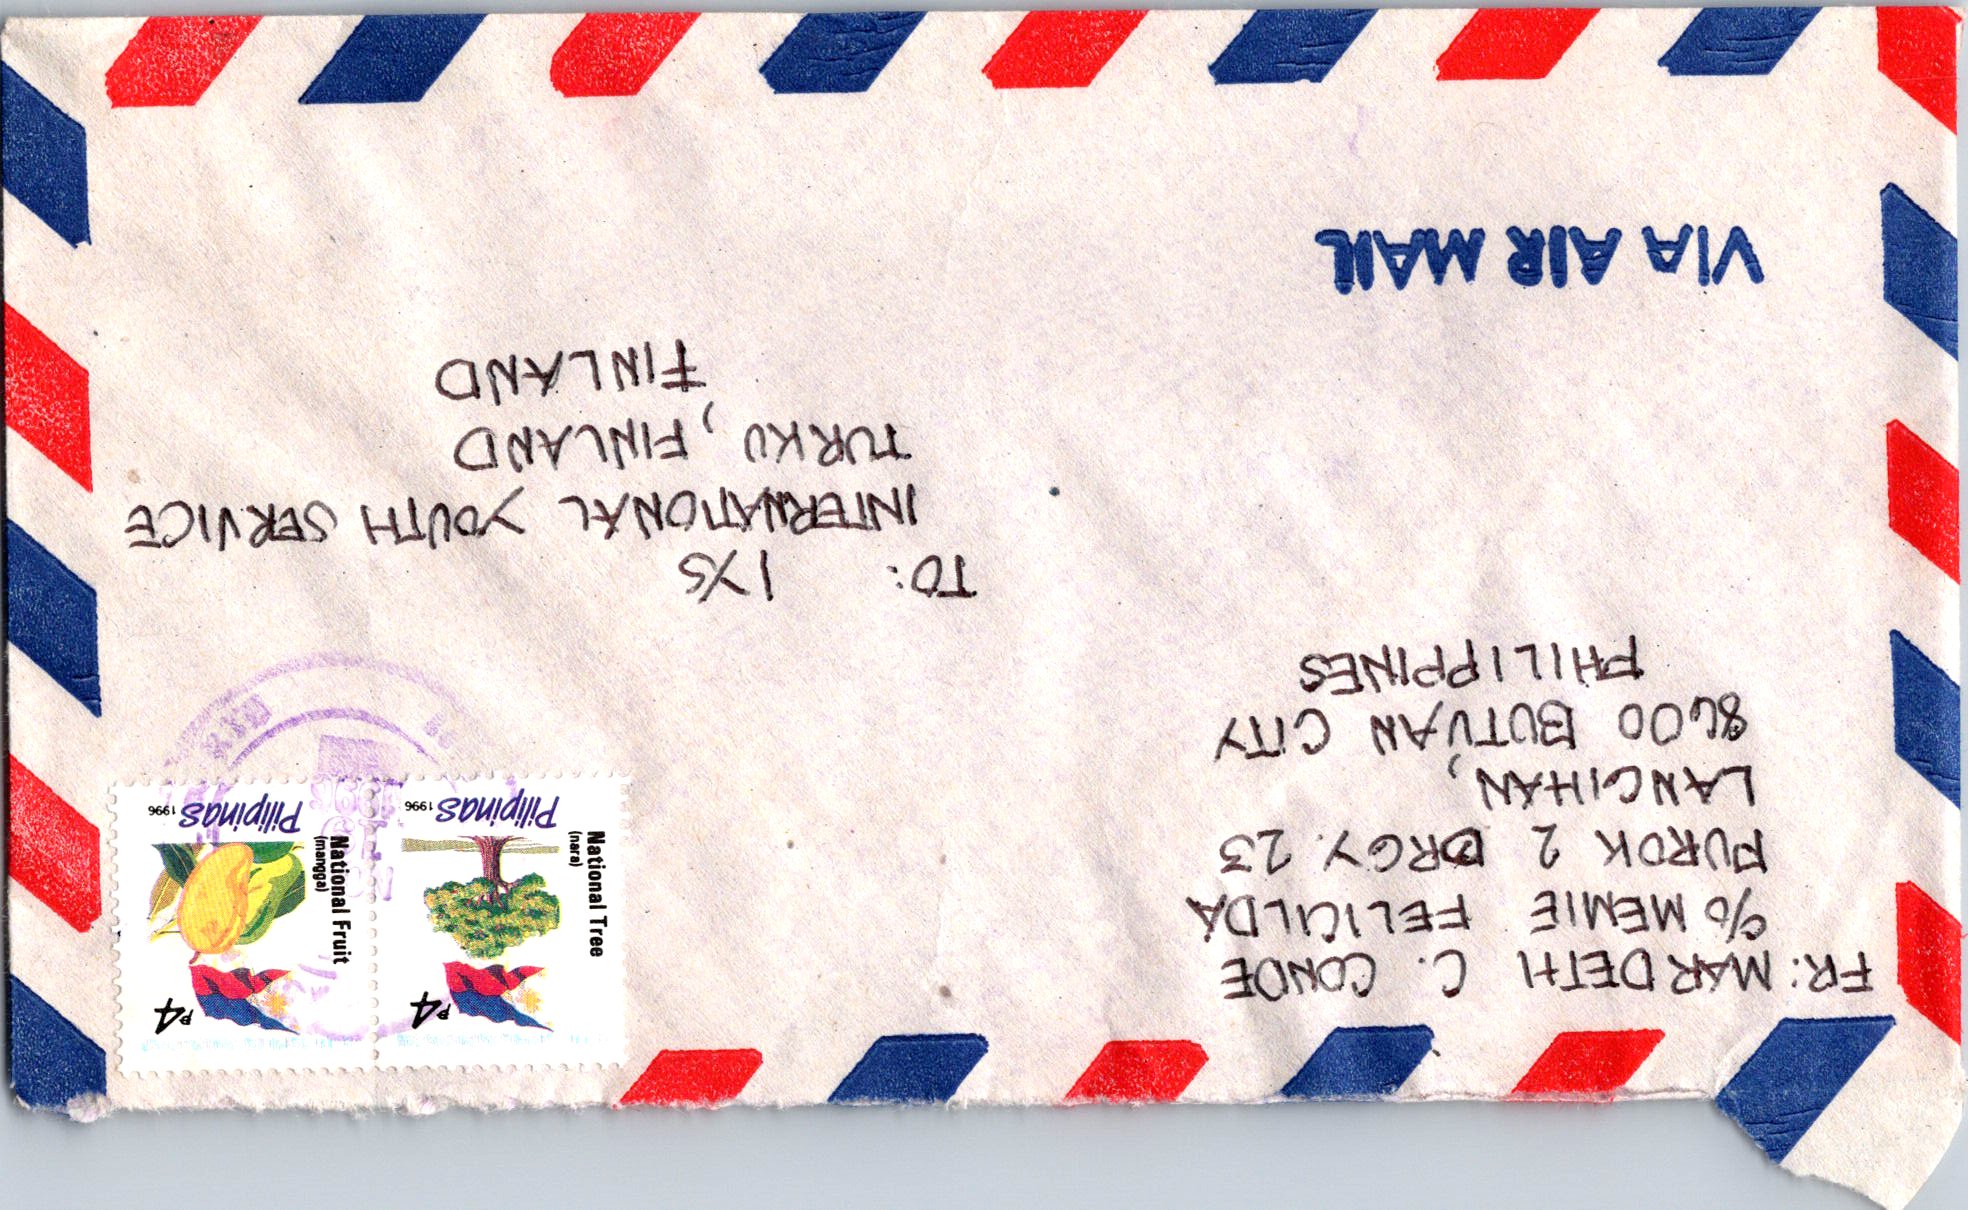 FR: MARDETH C. CONDE
c/o MEMIE FELICILDA
PUROK 2 BRGY. 23
LANGIHAN,
8600 BUTUAN CITY
PHILIPPINES
₱4
National Tree
(nara)
Pilipinas 1996
₱4
National Fruit
(mangga)
Pilipinas 1996
TO: IYS
INTERNATIONAL YOUTH SERVICE
TURKU, FINLAND
FINLAND
VIA AIR MAIL